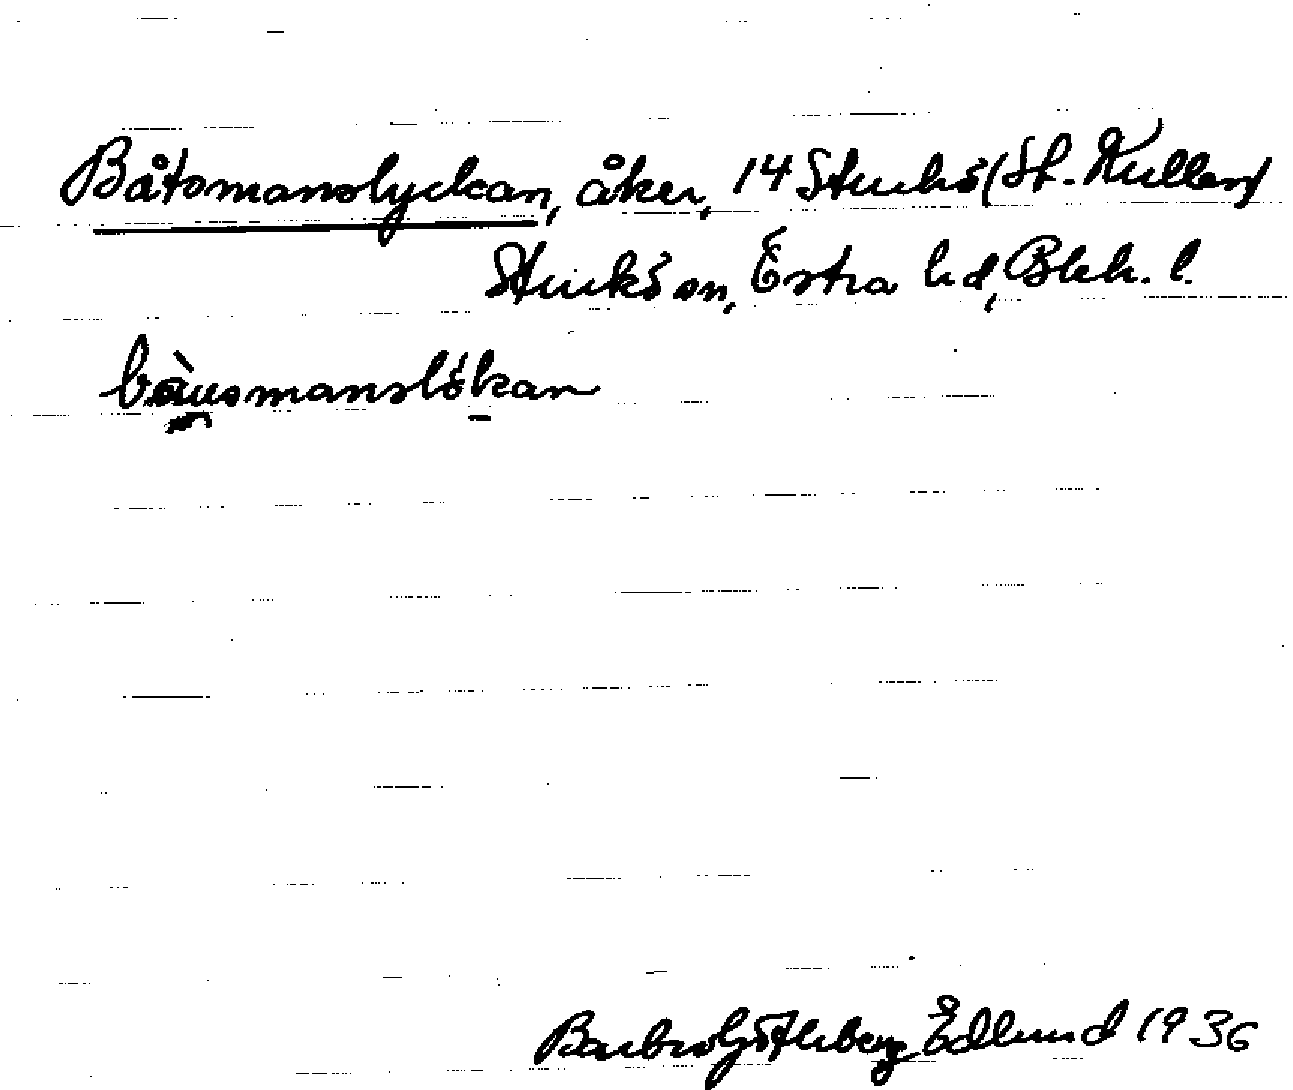 Båtsmanslyckan, åker, 14 Sturkö (St. Kullen)
Sturkö sn, Östra hd, Blek. l.
båusmanslökan
Barbro Götlberg Edlund 1936